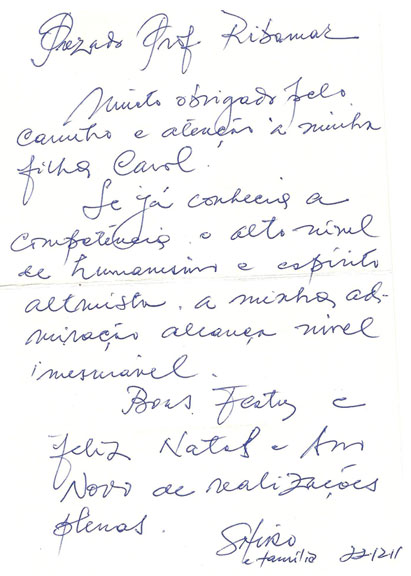 Prezado Prof Ribamar
Muito obrigado pelo
carinho e atenção à minha
filha Carol.
Se já conhecia a
competência e alto nivel
de humanismo e espírito
altruista. a minha ad-
miração alcança nivel
imesurável.
Boas Festas e
feliz Natal e Ano
Novo de realizações
plenas.
e família 22/12/11